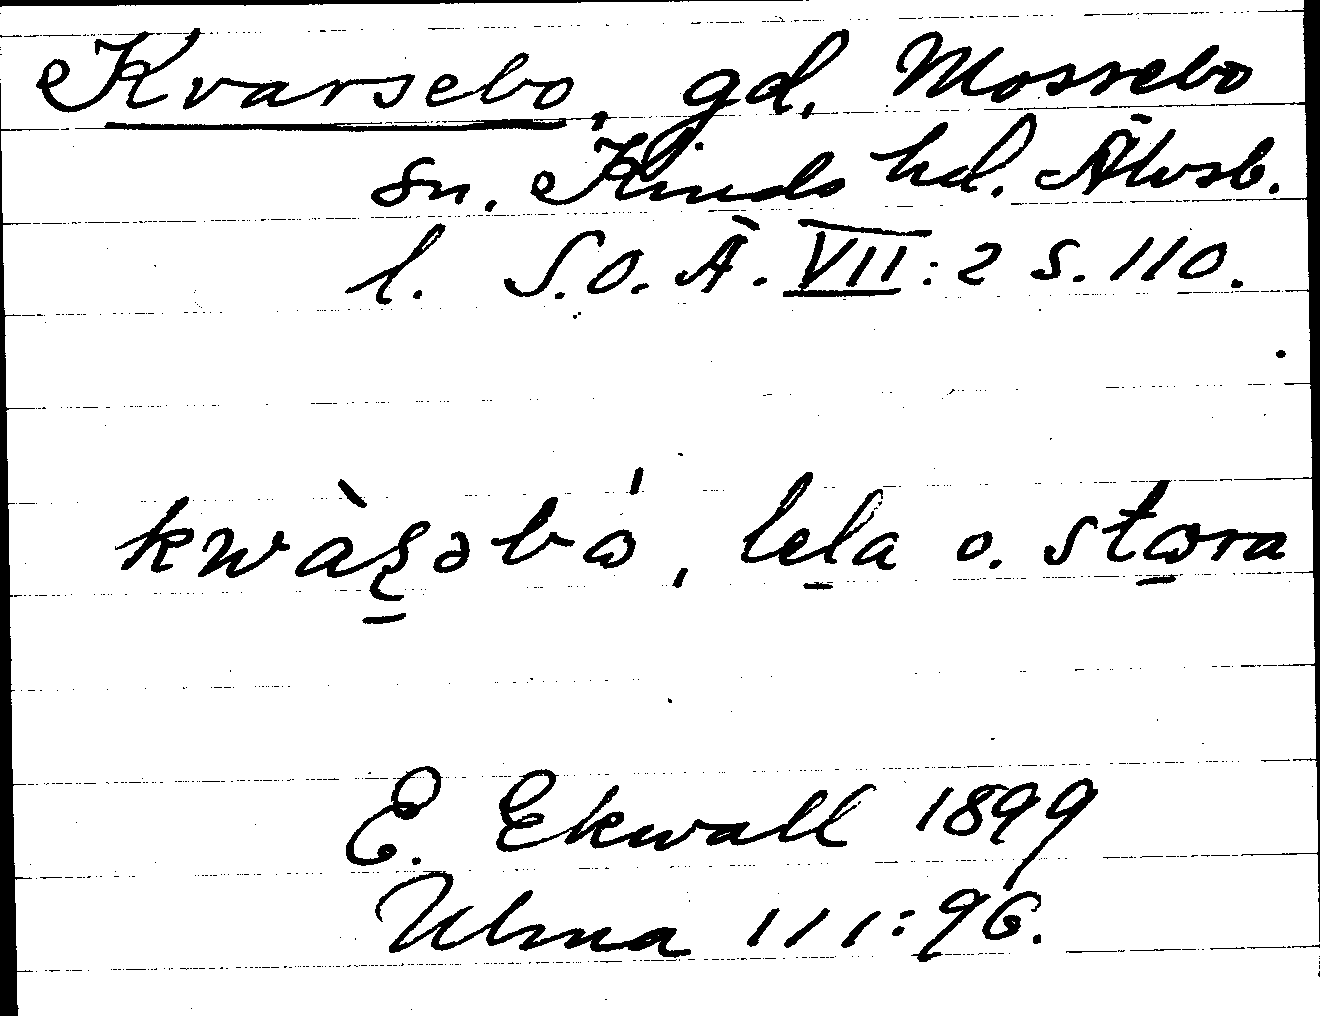 Kvarsebo, gd, Mossebo
sn. Kinds hd. Älvsb.
l. S.O.Ä. VII: 2 s. 110.
lela o. stora
E. Ekwall 1899
Ulma 111:96.